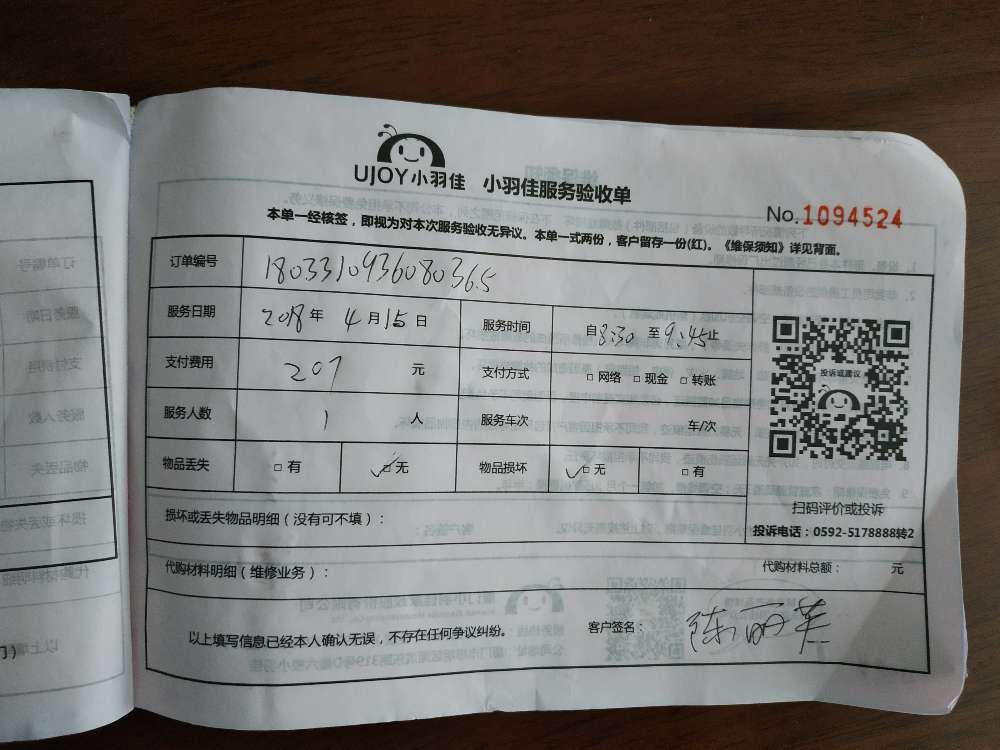 UJOY小羽佳 小羽佳服务验收单
No.1094524
本单一经核签，即视为对本次服务验收无异议。本单一式两份，客户留存一份(红)。《维保须知》详见背面。
订单编号 1803310936080365
服务日期 2018年 4月15日 服务时间 自8:30 至 9:45止
支付费用 207 元 支付方式 □网络 □现金 □转账
投诉或建议
服务人数 1 人 服务车次 车/次
物品丢失 □有 ✓□无 物品损坏 ✓□无 □有
扫码评价或投诉
损坏或丢失物品明细（没有可不填）：
投诉电话：0592-5178888转2
代购材料明细（维修业务）： 代购材料总额： 元
以上填写信息已经本人确认无误，不存在任何争议纠纷。 客户签名： 陈丽英